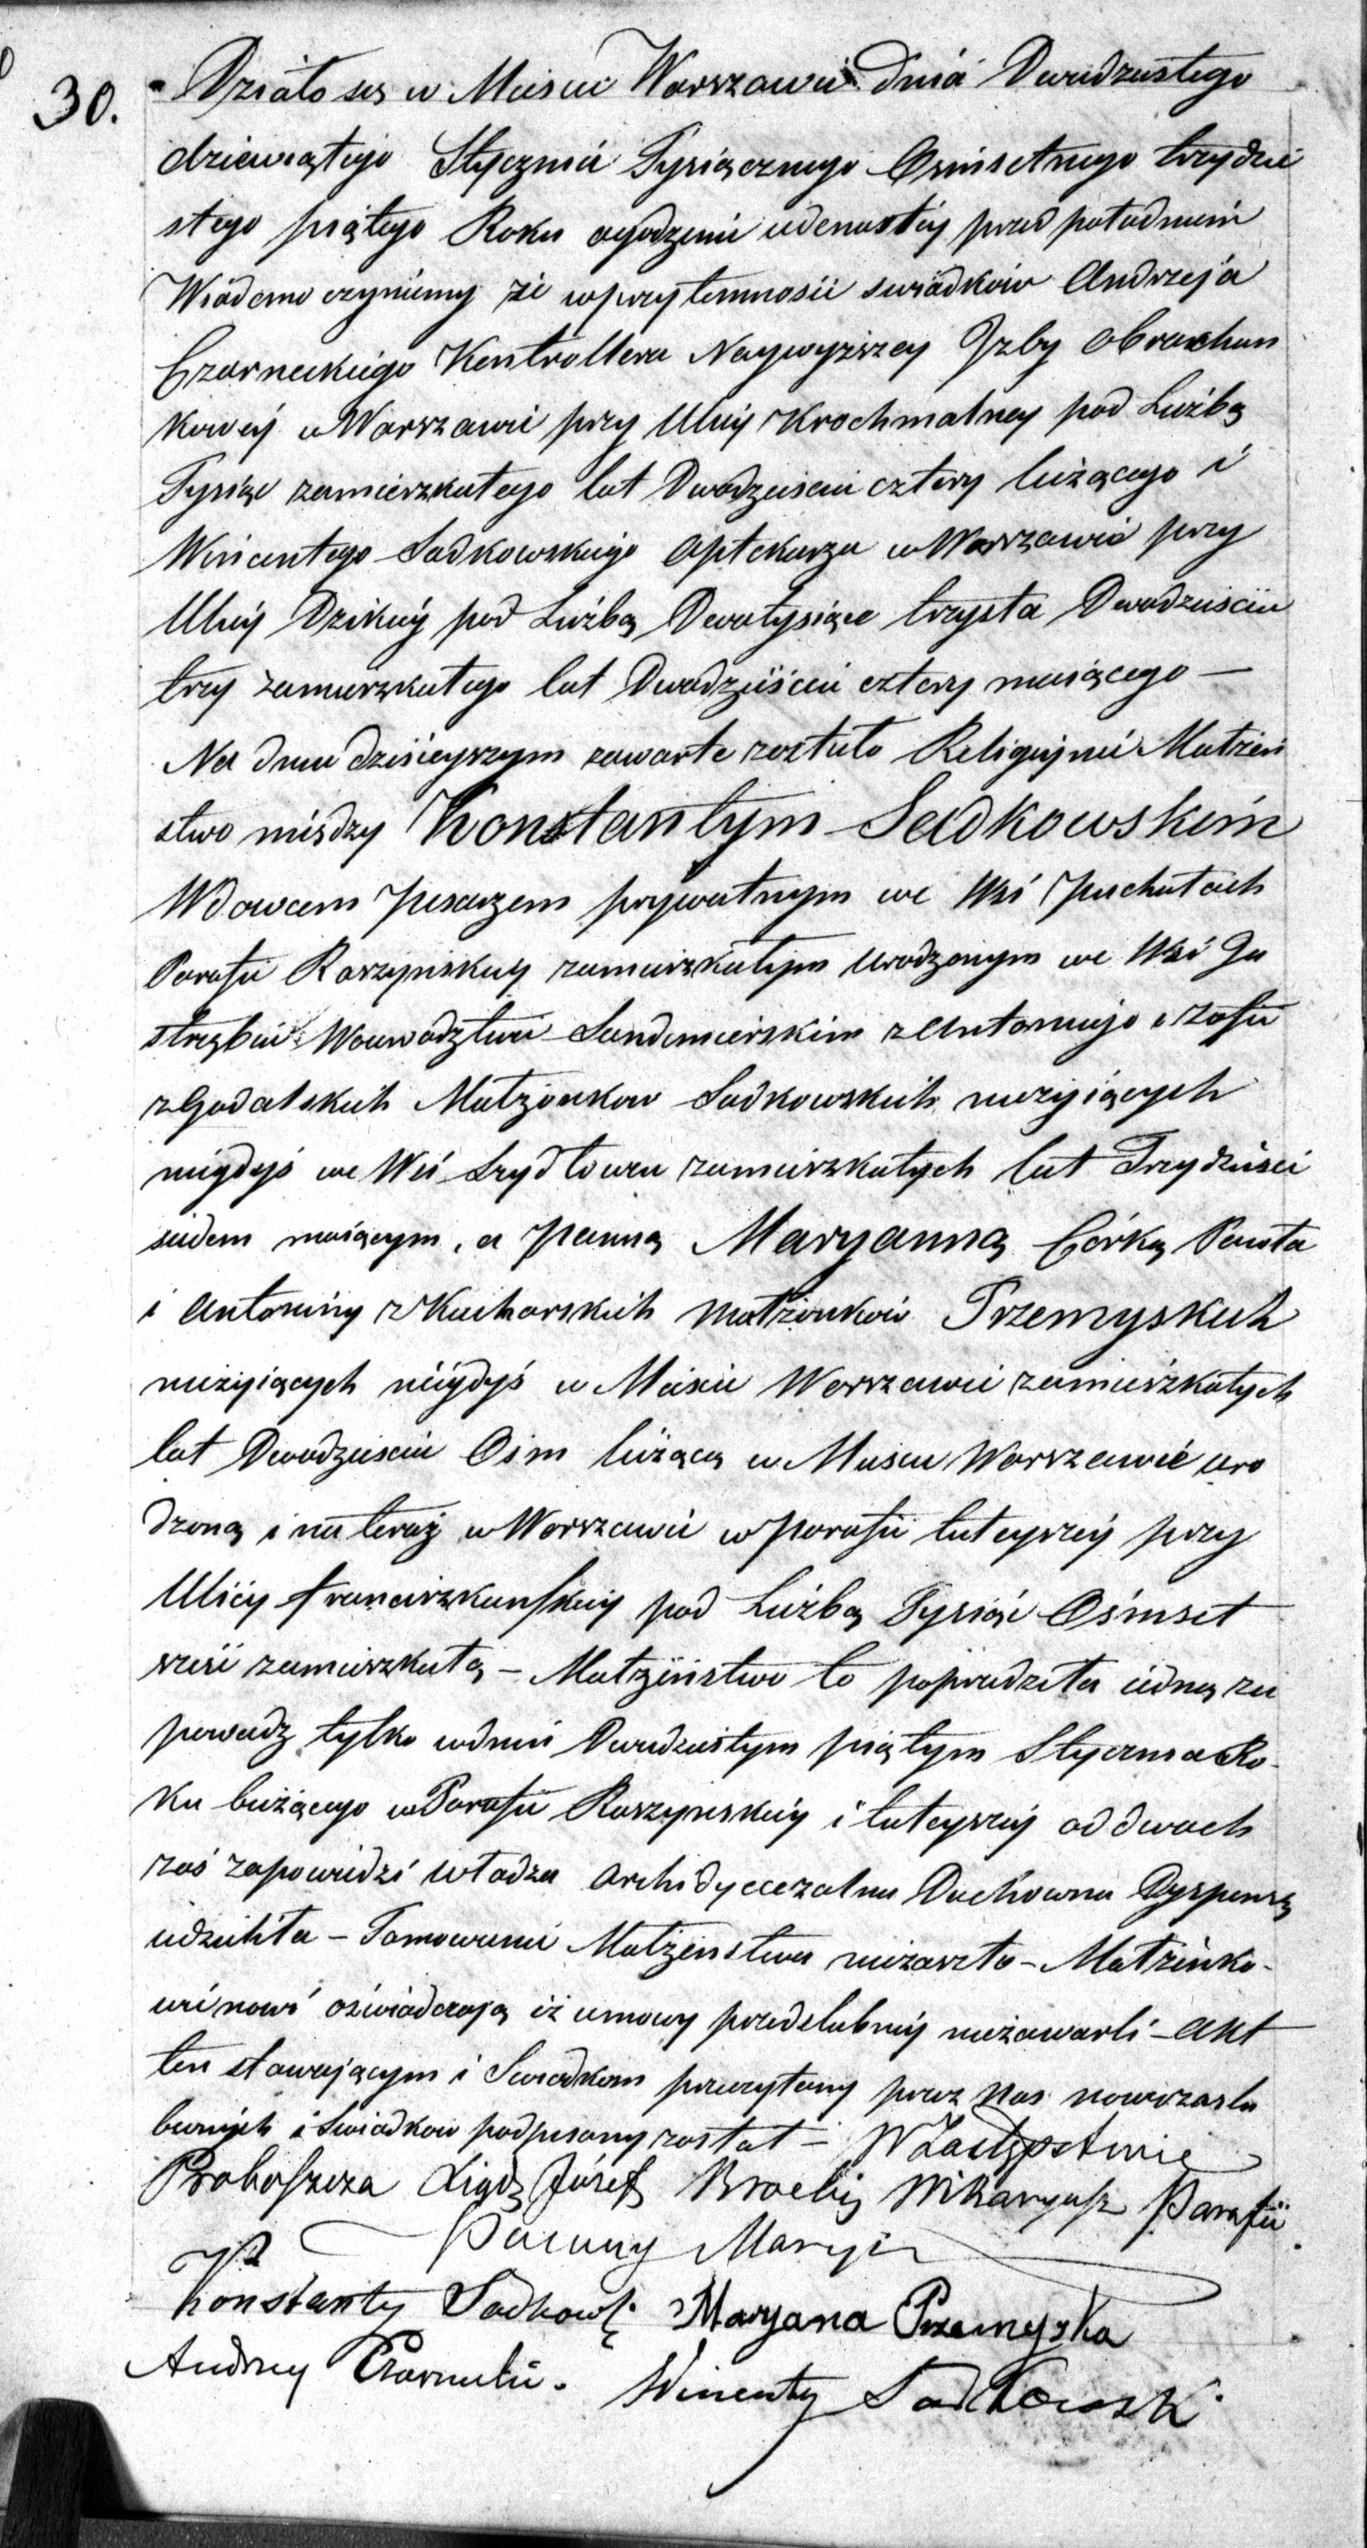 30.
Działo się w Mieście Warszawie dnia Dwudziestego
dziewiątego Stycznia Tysiącznego Ośmsetnego trzydzie
stego piątego Roku o godzinie iedenastéy przed południem
Wiadomo czyniemy że w przytomności świadków Andrzeja
Czarneckiego Kontrollera Naywyższey Jzby Obrachun
kowéy w Warszawie przy Ulicy Krochmalney pod Liczbą
Tysiąc zamieszkałego lat Dwadzieścia cztery liczącego i
Wincentego Sadkowskiego Aptekarza w Warszawie przy
Ulicy Dzikiéy pod Liczbą Dwatysiące trzysta Dwadzieścia
trzy zamieszkałego lat Dwadzieścia cztery maiącego —
Na dniu dzisieyszym zawarte zostało Religijne Małżeń
stwo między Konstantym Sadkowskim
Wdowcem Pisarzem prywatnym we Wsi Puchałach
Parafii Raszyńskiey zamieszkałym urodzonym we Wsi Ja
strzębiu Woiewództwie Sandomierskim z Antoniego i Zofii
z Godalskich Małżonków Sadkowskich nieżyiących
niegdyś we Wsi Szydłowcu zamieszkałych lat Trzydzieści
siedem maiącym, a Panną Maryanną Córką Pawła
i Antoniny z Kucharskich Małżonków Przemyskich
nieżyiących niegdyś w Mieście Warszawie zamieszkałych
lat Dwadzieścia Ośm liczącą w Mieście Warszawie uro
dzoną i na teraz w Warszawie w Parafii tuteyszéy przy
Ulicy Franciszkańskiéy pod Liczbą Tysiąc Ośmset
sześć zamieszkałą – Małżeństwo to poprzedziła iedna za
powiedz tylko w dniu Dwudziestym piątym Stycznia Ro-
ku bieżącego w Parafii Raszyńskiéy i tuteyszéy od dwóch
zaś zapowiedzi Władza Archidyecezalna Duchowna Dyspensę
udzieliła – Tamowanie Małżeństwa niezaszło – Małżonko-
wie nowi oświadczają iż umowy przedślubnéy niezawarli – Akt
ten stawającym i Świadkom przeczytany przez Nas nowozaślu
bionych i Świadków podpisany został – W Zastępstwie
Proboszcza Xiądz Józef Wikaryusz Parafii
Panny Maryi
Konstanty Sadkowski Maryana Przemyska
Andrzey Czarnecki. Wincenty Sadkowski.